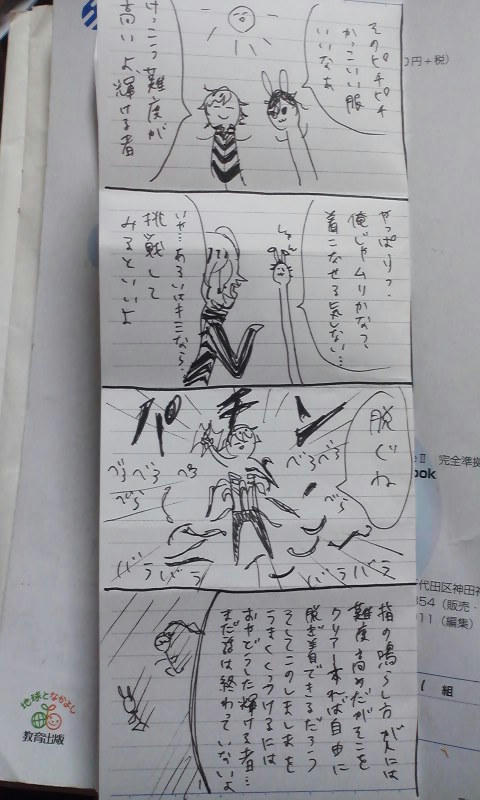 そのピチピチ
かっこいい服
いいなあ
けっこう難度が
高いよ、輝ける者
やっぱりっ、
俺じゃムリかな?
着こなせる気しない…
しゅん
いや…あるいはキミなら…
挑戦して
みるといいよ
脱ぐね
パチン
べろべろ
べろべろ
べら
べら
バラバラ
バラバラ
指の鳴らし方が人には
難度高めだがそこを
クリアー出来れば自由に
脱ぎ着できるだろう
そしてこのしましまを
うまくくっつけるには
おやどうした輝ける者…
まだ話は終わっていないよ
0円+税)
II 完全準拠
ook
代田区神田神
354(販売・
011(編集)
組
地球となかよし
教育出版